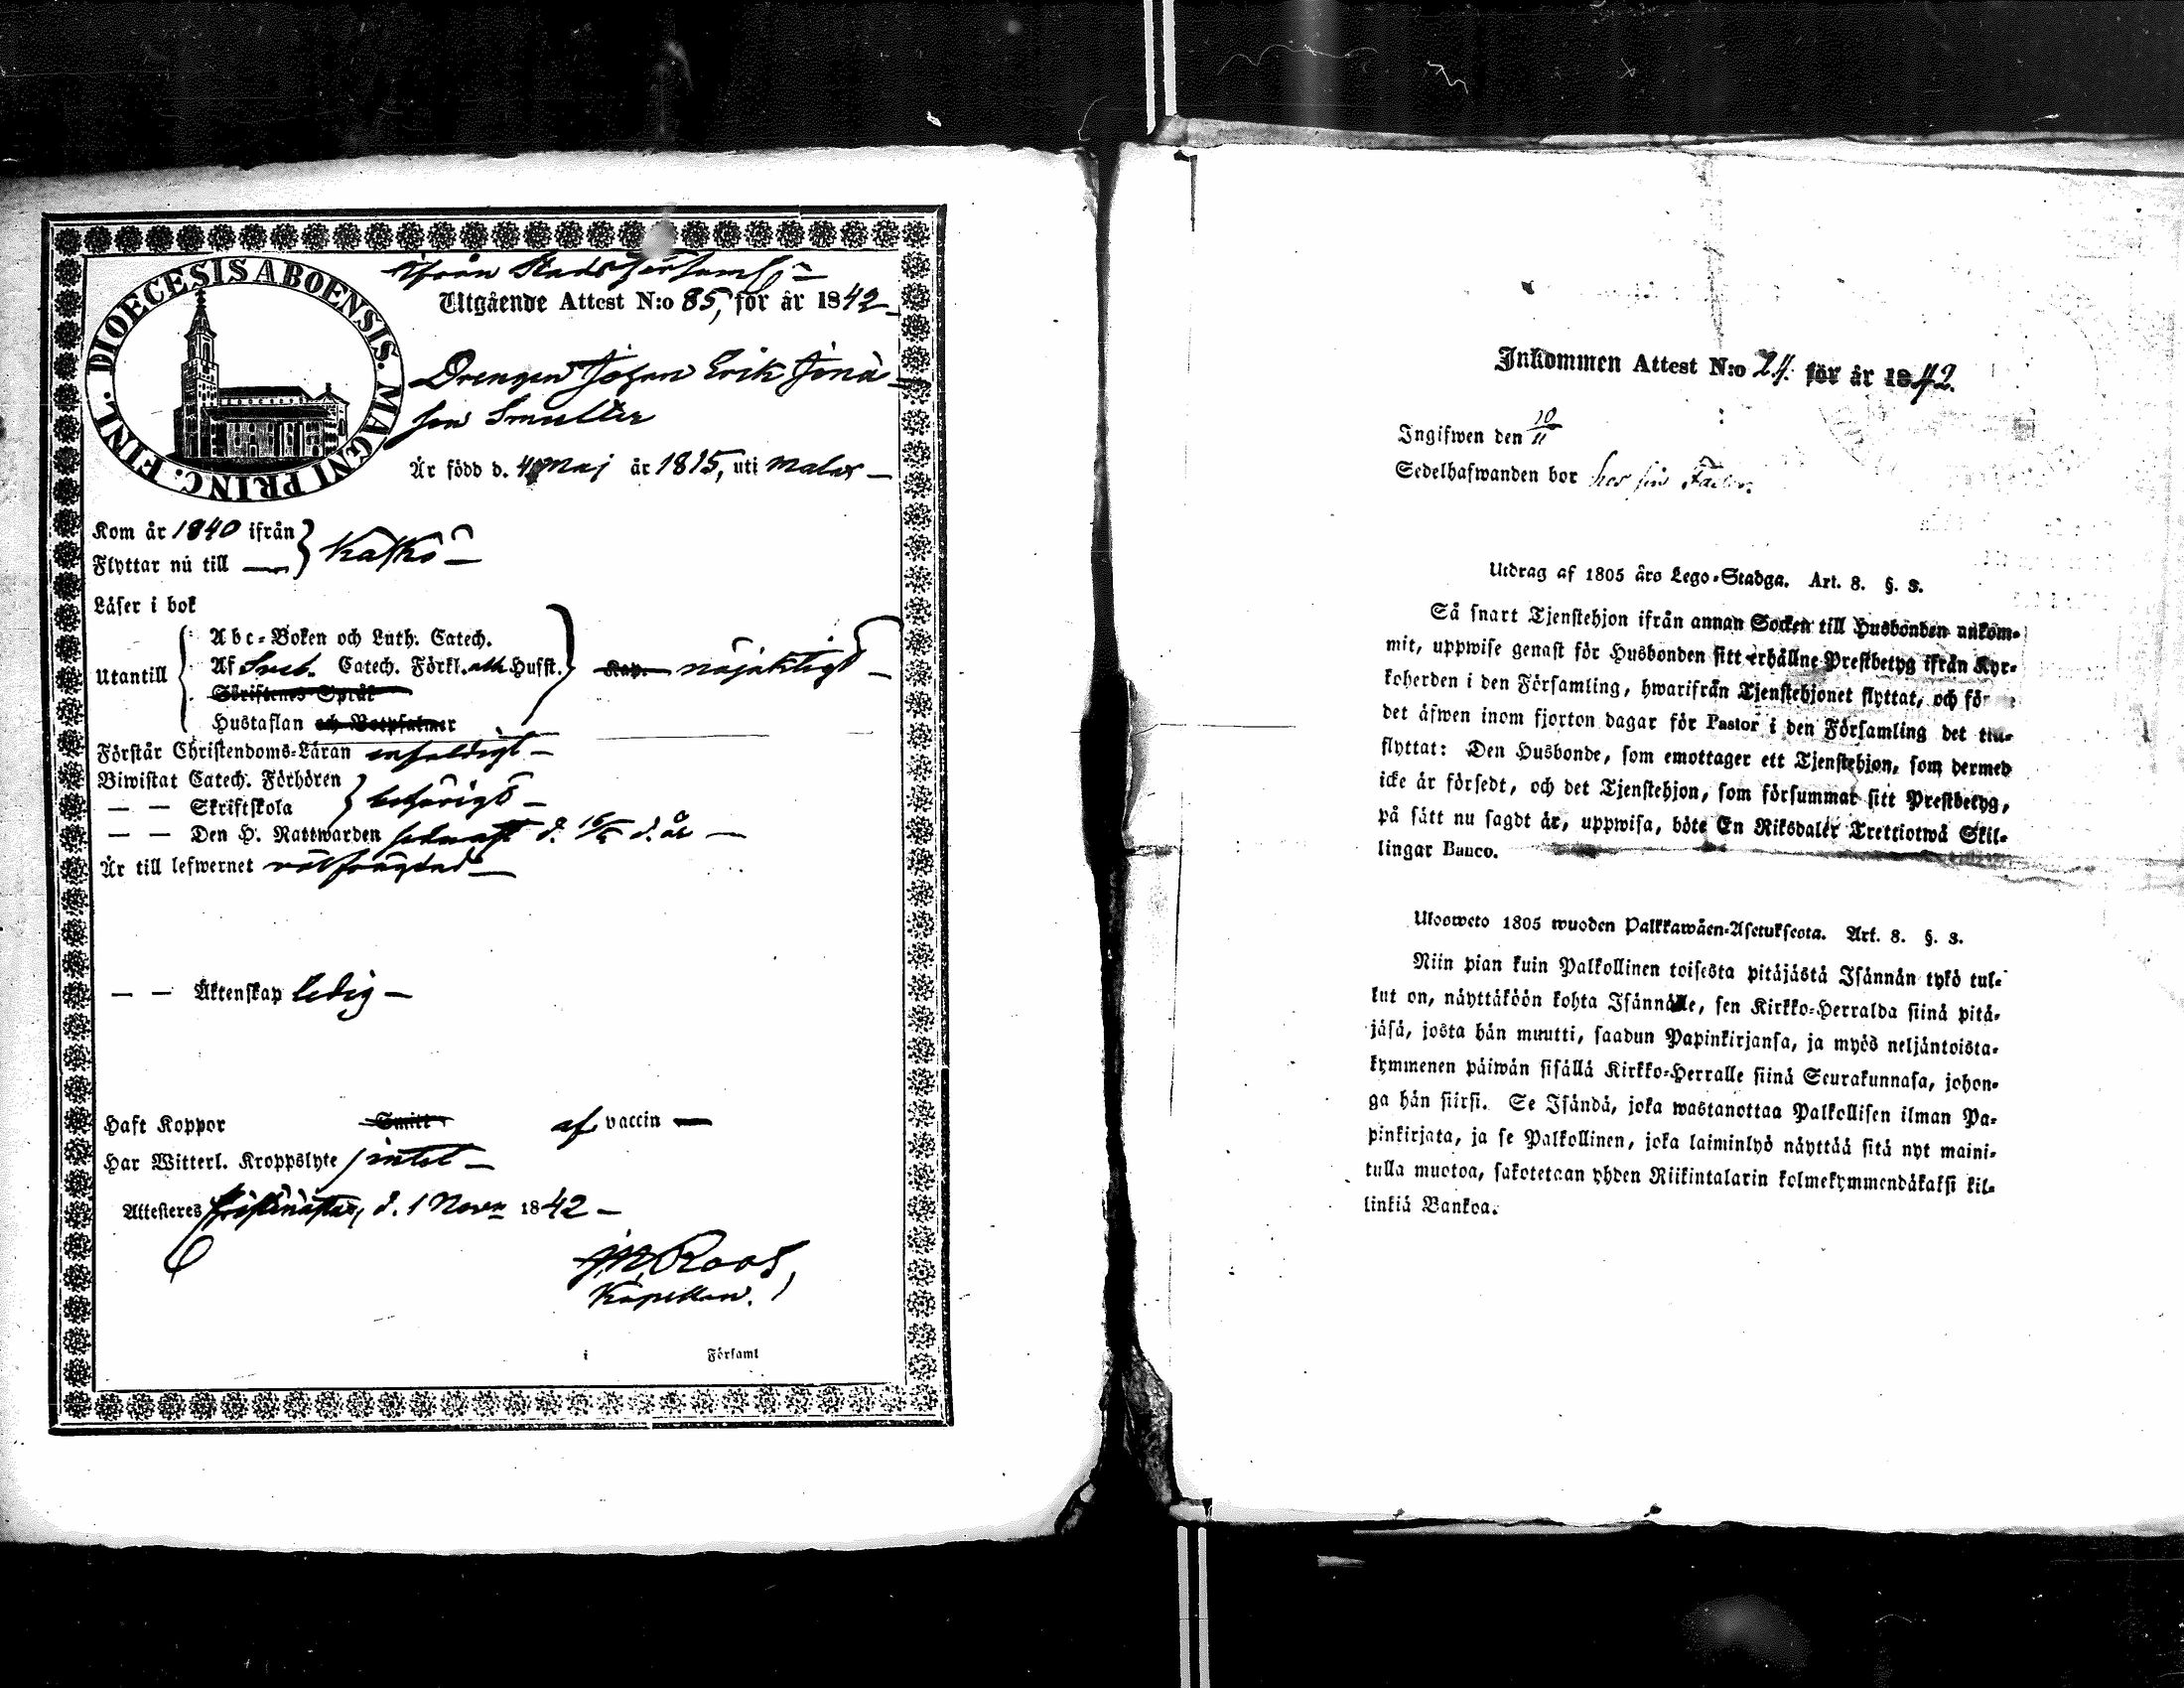 DIOECESIS ABOENSIS. MAGNI PRINC. FINL.
ifrån Stadsförsaml:n
Utgående Attest N:o 85, för år 1842
Drengen Johan Erik Jonas-
son Smulter
Är född d. 4 Maj år 1815, uti Malax
Kom år 1840 ifrån
Flyttar nu till
Kaskö
Läser i bok
Utantill
Abc-Boken och Luth. Catech.
Af Sveb. Catech. Förkl. och Hufst.
nöjaktigt
Skriftenes Språk
Hustaflan och Botpsalmer
Förstår Christendoms-Läran enfaldigt
Biwistat Catech. Förhören
— — Skriftskola
behörigt
— — Den H. Nattwarden sednast d. d. år
Är till lefwernet välfrägdad
— — Äktenskap ledig
Haft Koppor Smitt af vaccin
Har Witterl. Kroppslyte intet
Attesteres Christinestad, d. 1 Nove 1842
Roos
Kapellan.
i Församl
Inkommen Attest N:o 24. för år 1842.
Ingifwen den 10/11
Sedelhafwanden bor hos sin Fader.
Utdrag af 1805 års Lego-Stadga. Art. 8. §. 3.
Så snart Tjenstehjon ifrån annan Socken till Husbonden ankom-
mit, uppwise genast för Husbonden sitt erhållne Prestbetyg ifrån Kyr-
koherden i den Församling, hwarifrån Tjenstehjonet flyttat, och fö
det äfwen inom fjorton dagar för Pastor i den Församling det till-
flyttat: Den Husbonde, som emottager ett Tjenstehjon, som dermed
icke är försedt, och det Tjenstehjon, som försummat sitt Prestbetyg,
på sätt nu sagdt är, uppwisa, böte En Riksdaler Trettiotwå Skil-
lingar Banco.
Ulosweto 1805 wuoden Palkkawäen-Asetuksesta. Art. 8. §. 3.
Niin pian kuin Palkollinen toisesta pitäjästä Isännän tykö tul-
lut on, näyttäköön kohta Isännälle, sen Kirkko-Herralda siinä pitä-
jäsä, josta hän muutti, saadun Papinkirjansa, ja myös neljäntoista-
kymmenen päiwän sisällä Kirkko-Herralle siinä Seurakunnasa, johon-
ga hän siirsi. Se Isändä, joka wastanottaa Palkollisen ilman Pa-
pinkirjata, ja se Palkollinen, joka laiminlyö näyttää sitä nyt maini-
tulla muotoa, sakotetaan yhden Riikintalarin kolmekymmendäkaksi kil-
linkiä Bankoa.